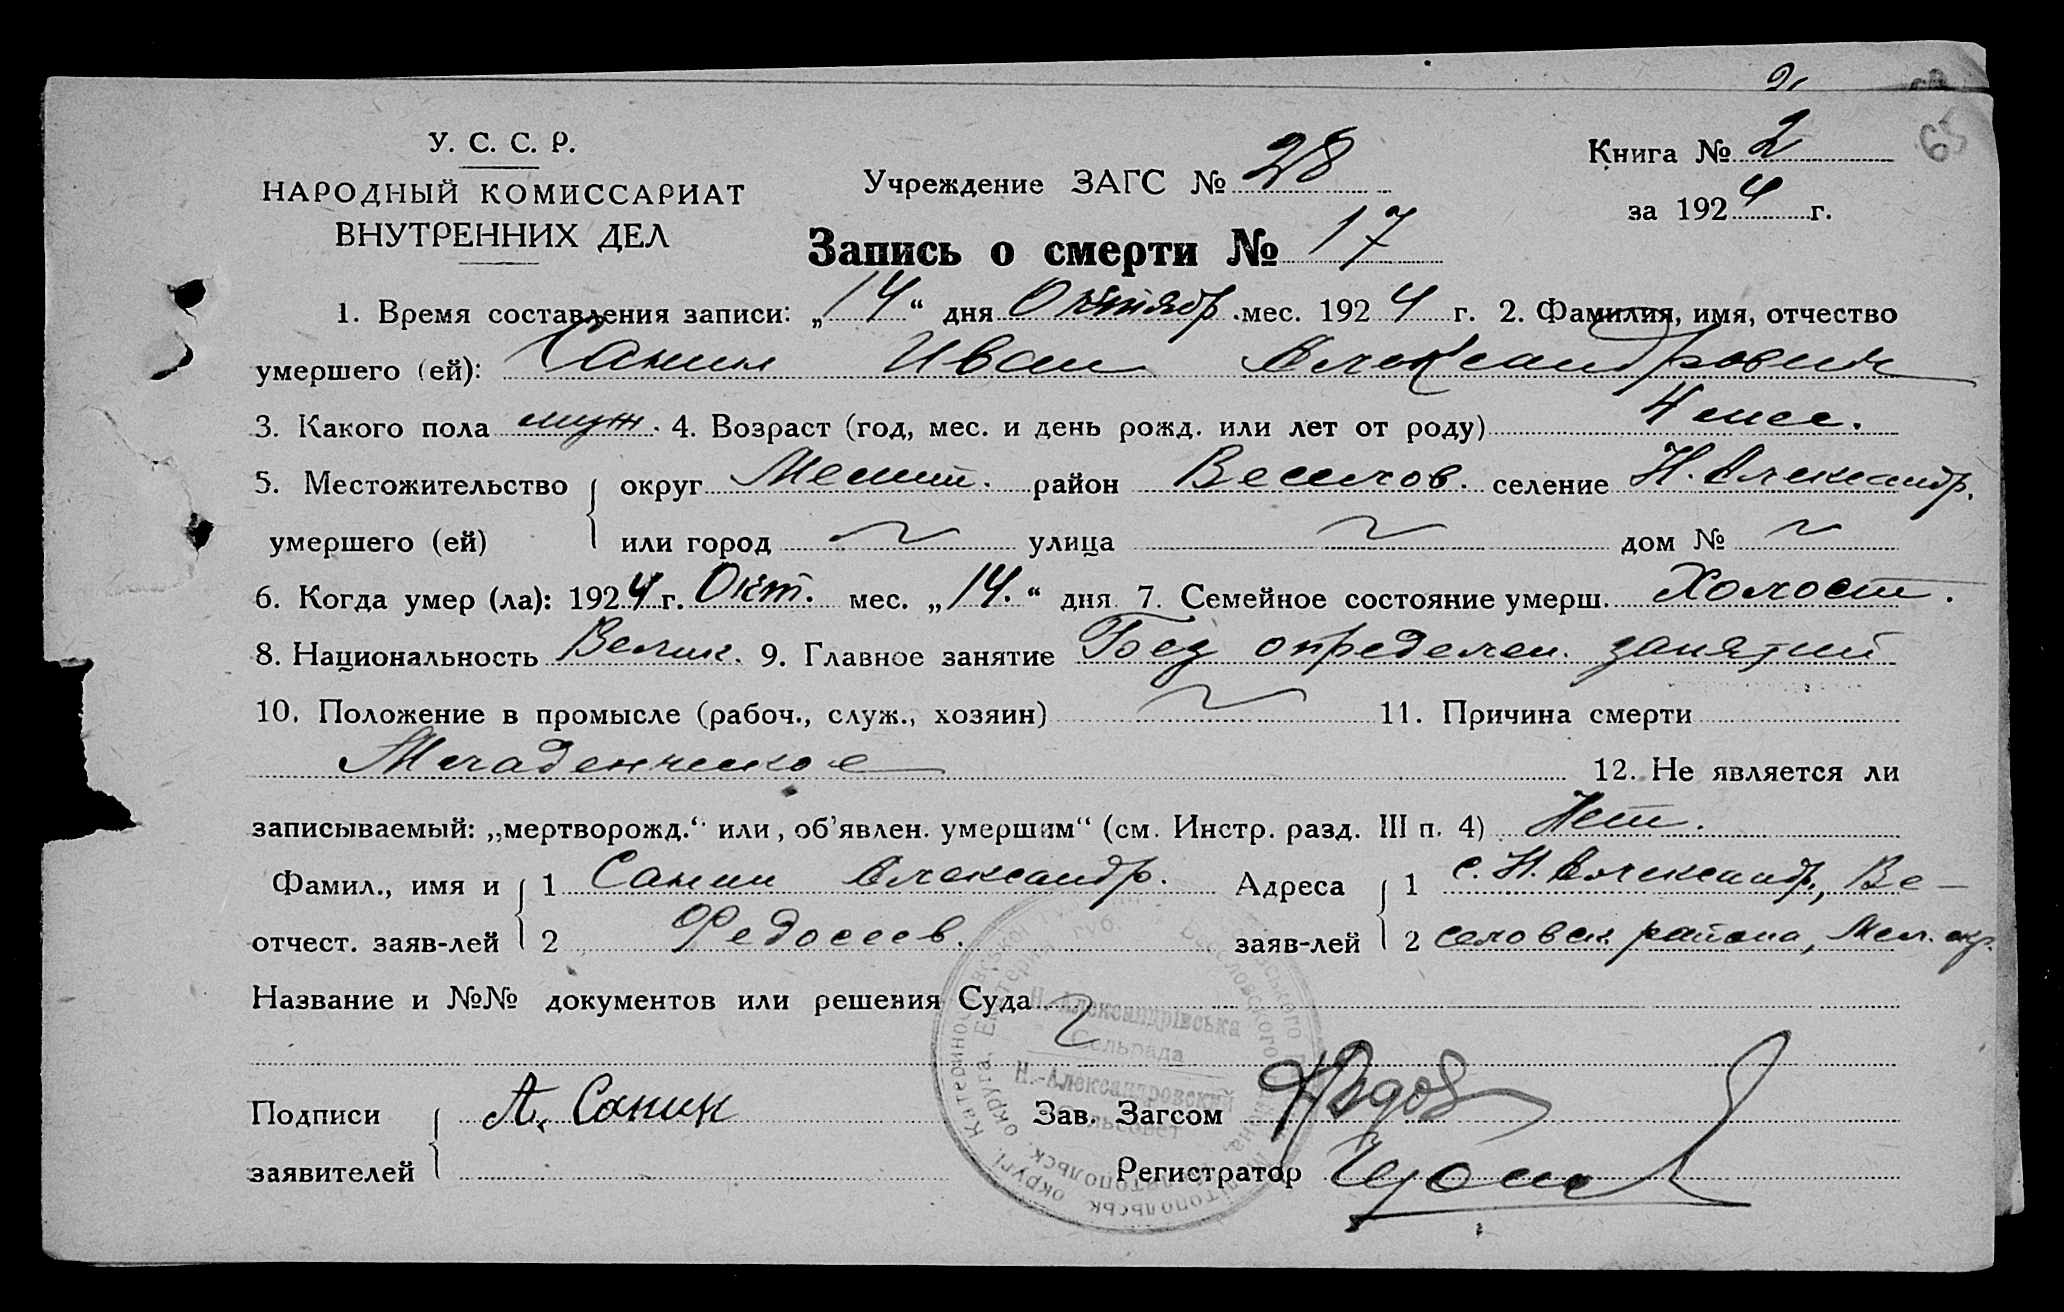 У. С. С. Р.
НАРОДНЫЙ КОМИССАРИАТ
ВНУТРЕННИХ ДЕЛ
Учреждение ЗАГС № 28
Книга № 2
65
за 1924 г.
Запись о смерти № 17
1. Время составления записи: „14“ дня Октябр. мес. 1924 г. 2. Фамилия, имя, отчество
умершего (ей): Санин Иван Александрович
3. Какого пола муж. 4. Возраст (год, мес. и день рожд. или лет от роду) 4 мес.
5. Местожительство округ Мелит. район Веселов. селение Н. Александр.
умершего (ей) или город улица дом №
6. Когда умер (ла): 1924 г. Окт. мес. „14.“ дня 7. Семейное состояние умерш. Холост.
8. Национальность Велик. 9. Главное занятие Без определен. занятий
10. Положение в промысле (рабоч., служ., хозяин) 11. Причина смерти
Младенческое 12. Не является ли
записываемый: „мертворожд.“ или „об'явлен. умершим“ (см. Инстр. разд. III п. 4) Нет.
Фамил., имя и 1 Санин Александр. Адреса 1 с. Н. Александр., Ве-
отчест. заяв-лей 2 Федосеев. заяв-лей 2 селовск. района, Мел. окр.
Название и №№ документов или решения Суда
Н. Александрівська
Сельрада
Н.-Александровский
Сельсовет
Подписи А. Санин Зав. Загсом
заявителей Регистратор